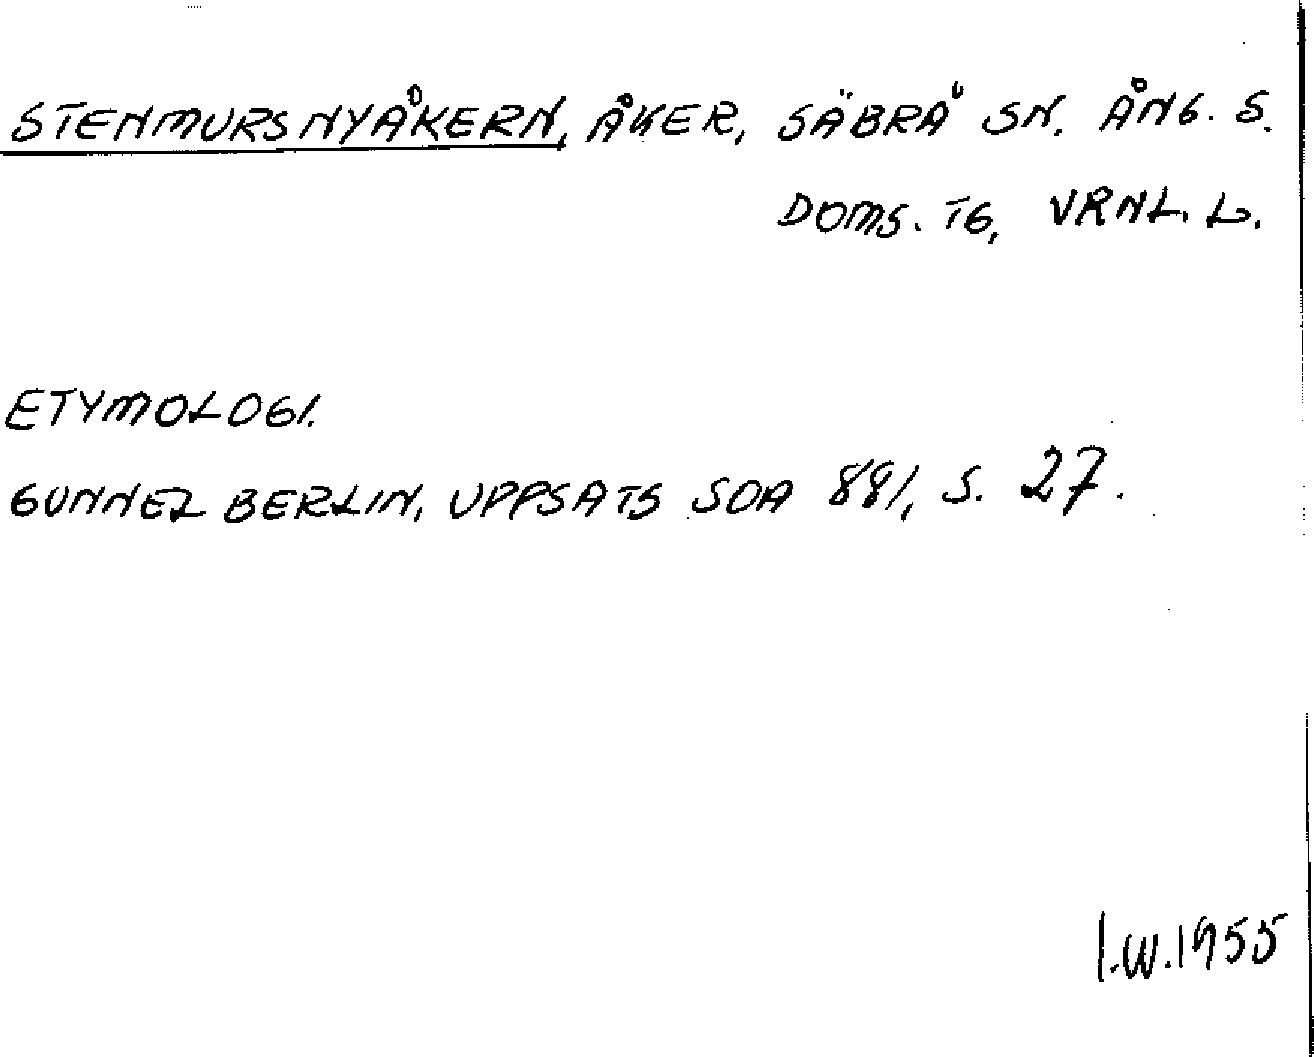 STENMURSNYÅKERN, ÅKER, SÄBRÅ SN. ÅNG. S.
DOMS. TG, VRNL. L.
ETYMOLOGI.
GUNNEL BERLIN, UPPSATS SOA 881, S. 27.
I.W.1955